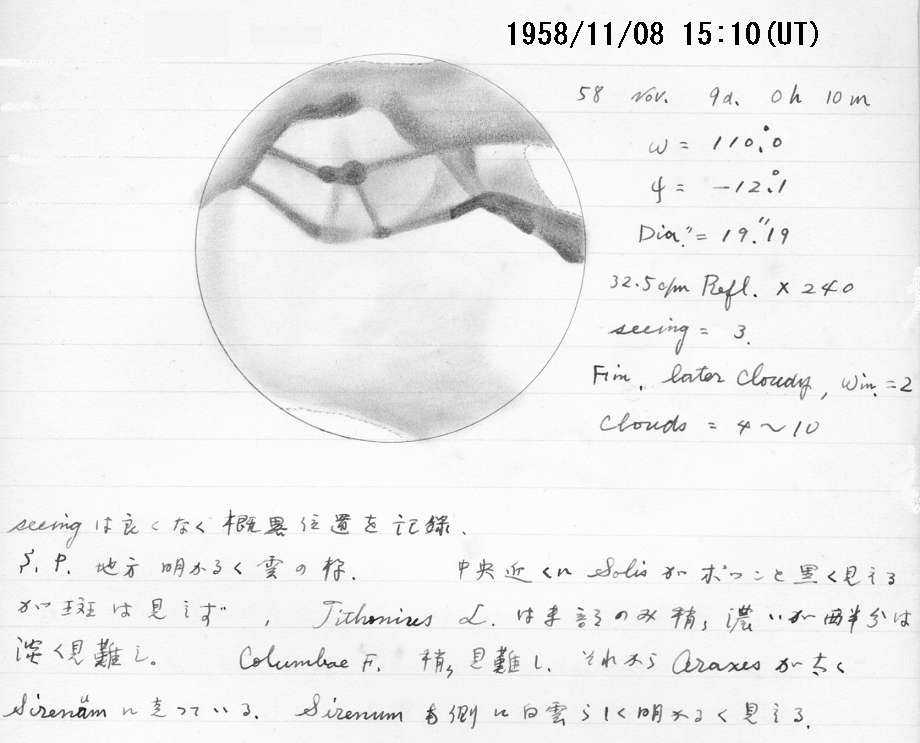 1958/11/08 15:10(UT)
58 Nov. 9d. 0h 10m
ω = 110.°0
φ = -12.°1
Dia. = 19."19
32.5cm Refl. × 240
seeing = 3.
Fine, later cloudy, Win. = 2
Clouds = 4~10
seeingは良くなく概畧位置を記録.
S.P. 地方明かるく雲の様. 中央近くに Solis がポツンと黒く見える
が 斑は見えず, Tithonius L. は東部のみ稍〻濃いが西半分は
淡く見難し. Columbae F. 稍〻見難し. それから Araxes が太く
Sirenum に走っている. Sirenum 南側に白雲らしく明かるく見える.